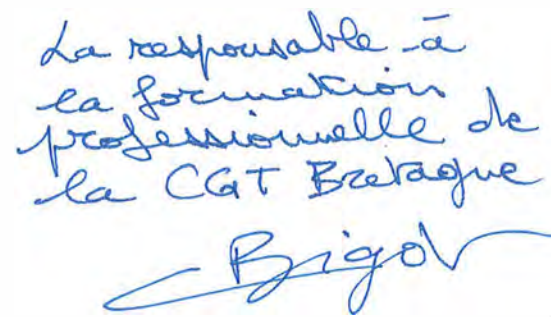 La responsable à
la formation
professionnelle de
la CGT Bretagne
Bigot